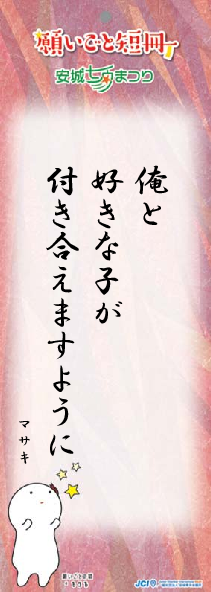 願いごと短冊
安城七夕まつり
俺と
好きな子が
付き合えますように
マサキ
願いごと短冊
JCI